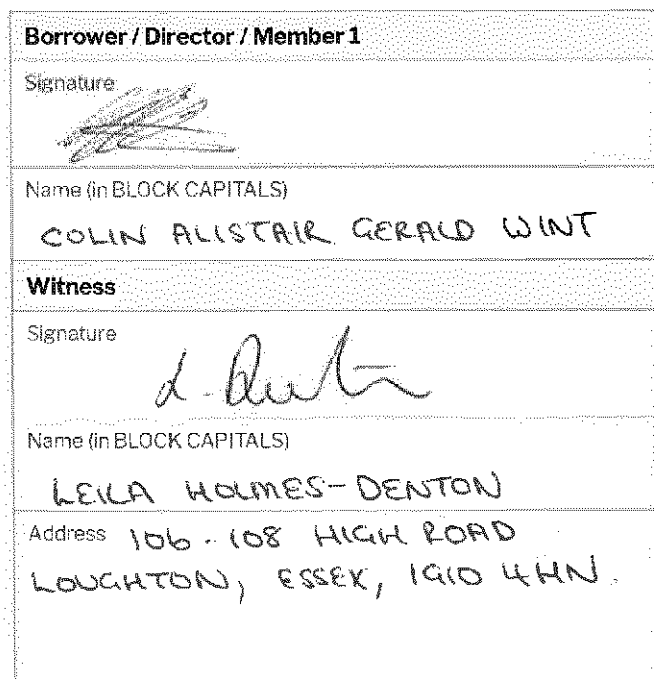 Borrower / Director / Member 1
Signature
Name (in BLOCK CAPITALS)
COLIN ALISTAIR GERALD WINT
Witness
Signature
Name (in BLOCK CAPITALS)
LEILA HOLMES-DENTON
Address 106-108 HIGH ROAD
LOUGHTON, ESSEX, IG10 4HN.